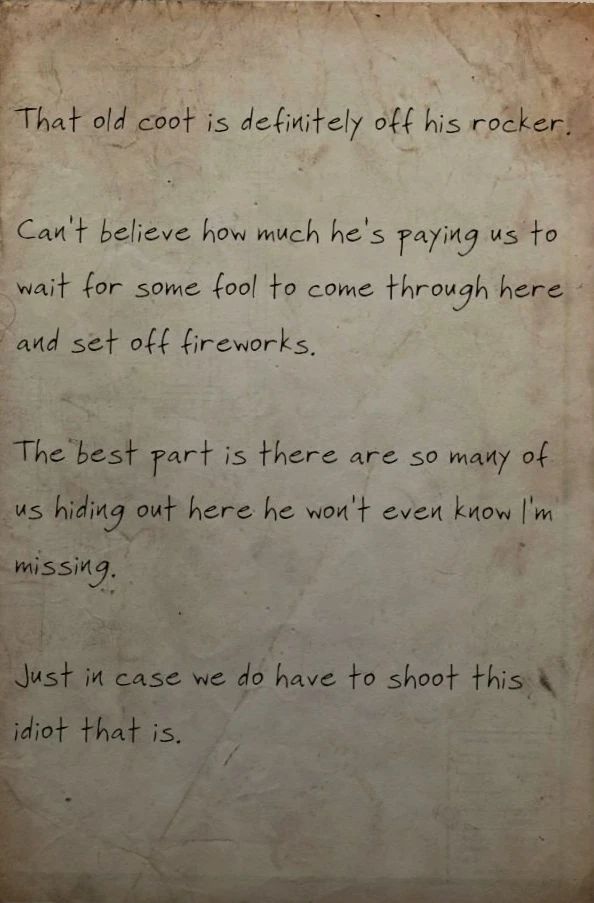 That old coot is definitely off his rocker.
Can't believe how much he's paying us to
wait for some fool to come through here
and set off fireworks.
The best part is there are so many of
us hiding out here he won't even know I'm
missing.
Just in case we do have to shoot this
idiot that is.